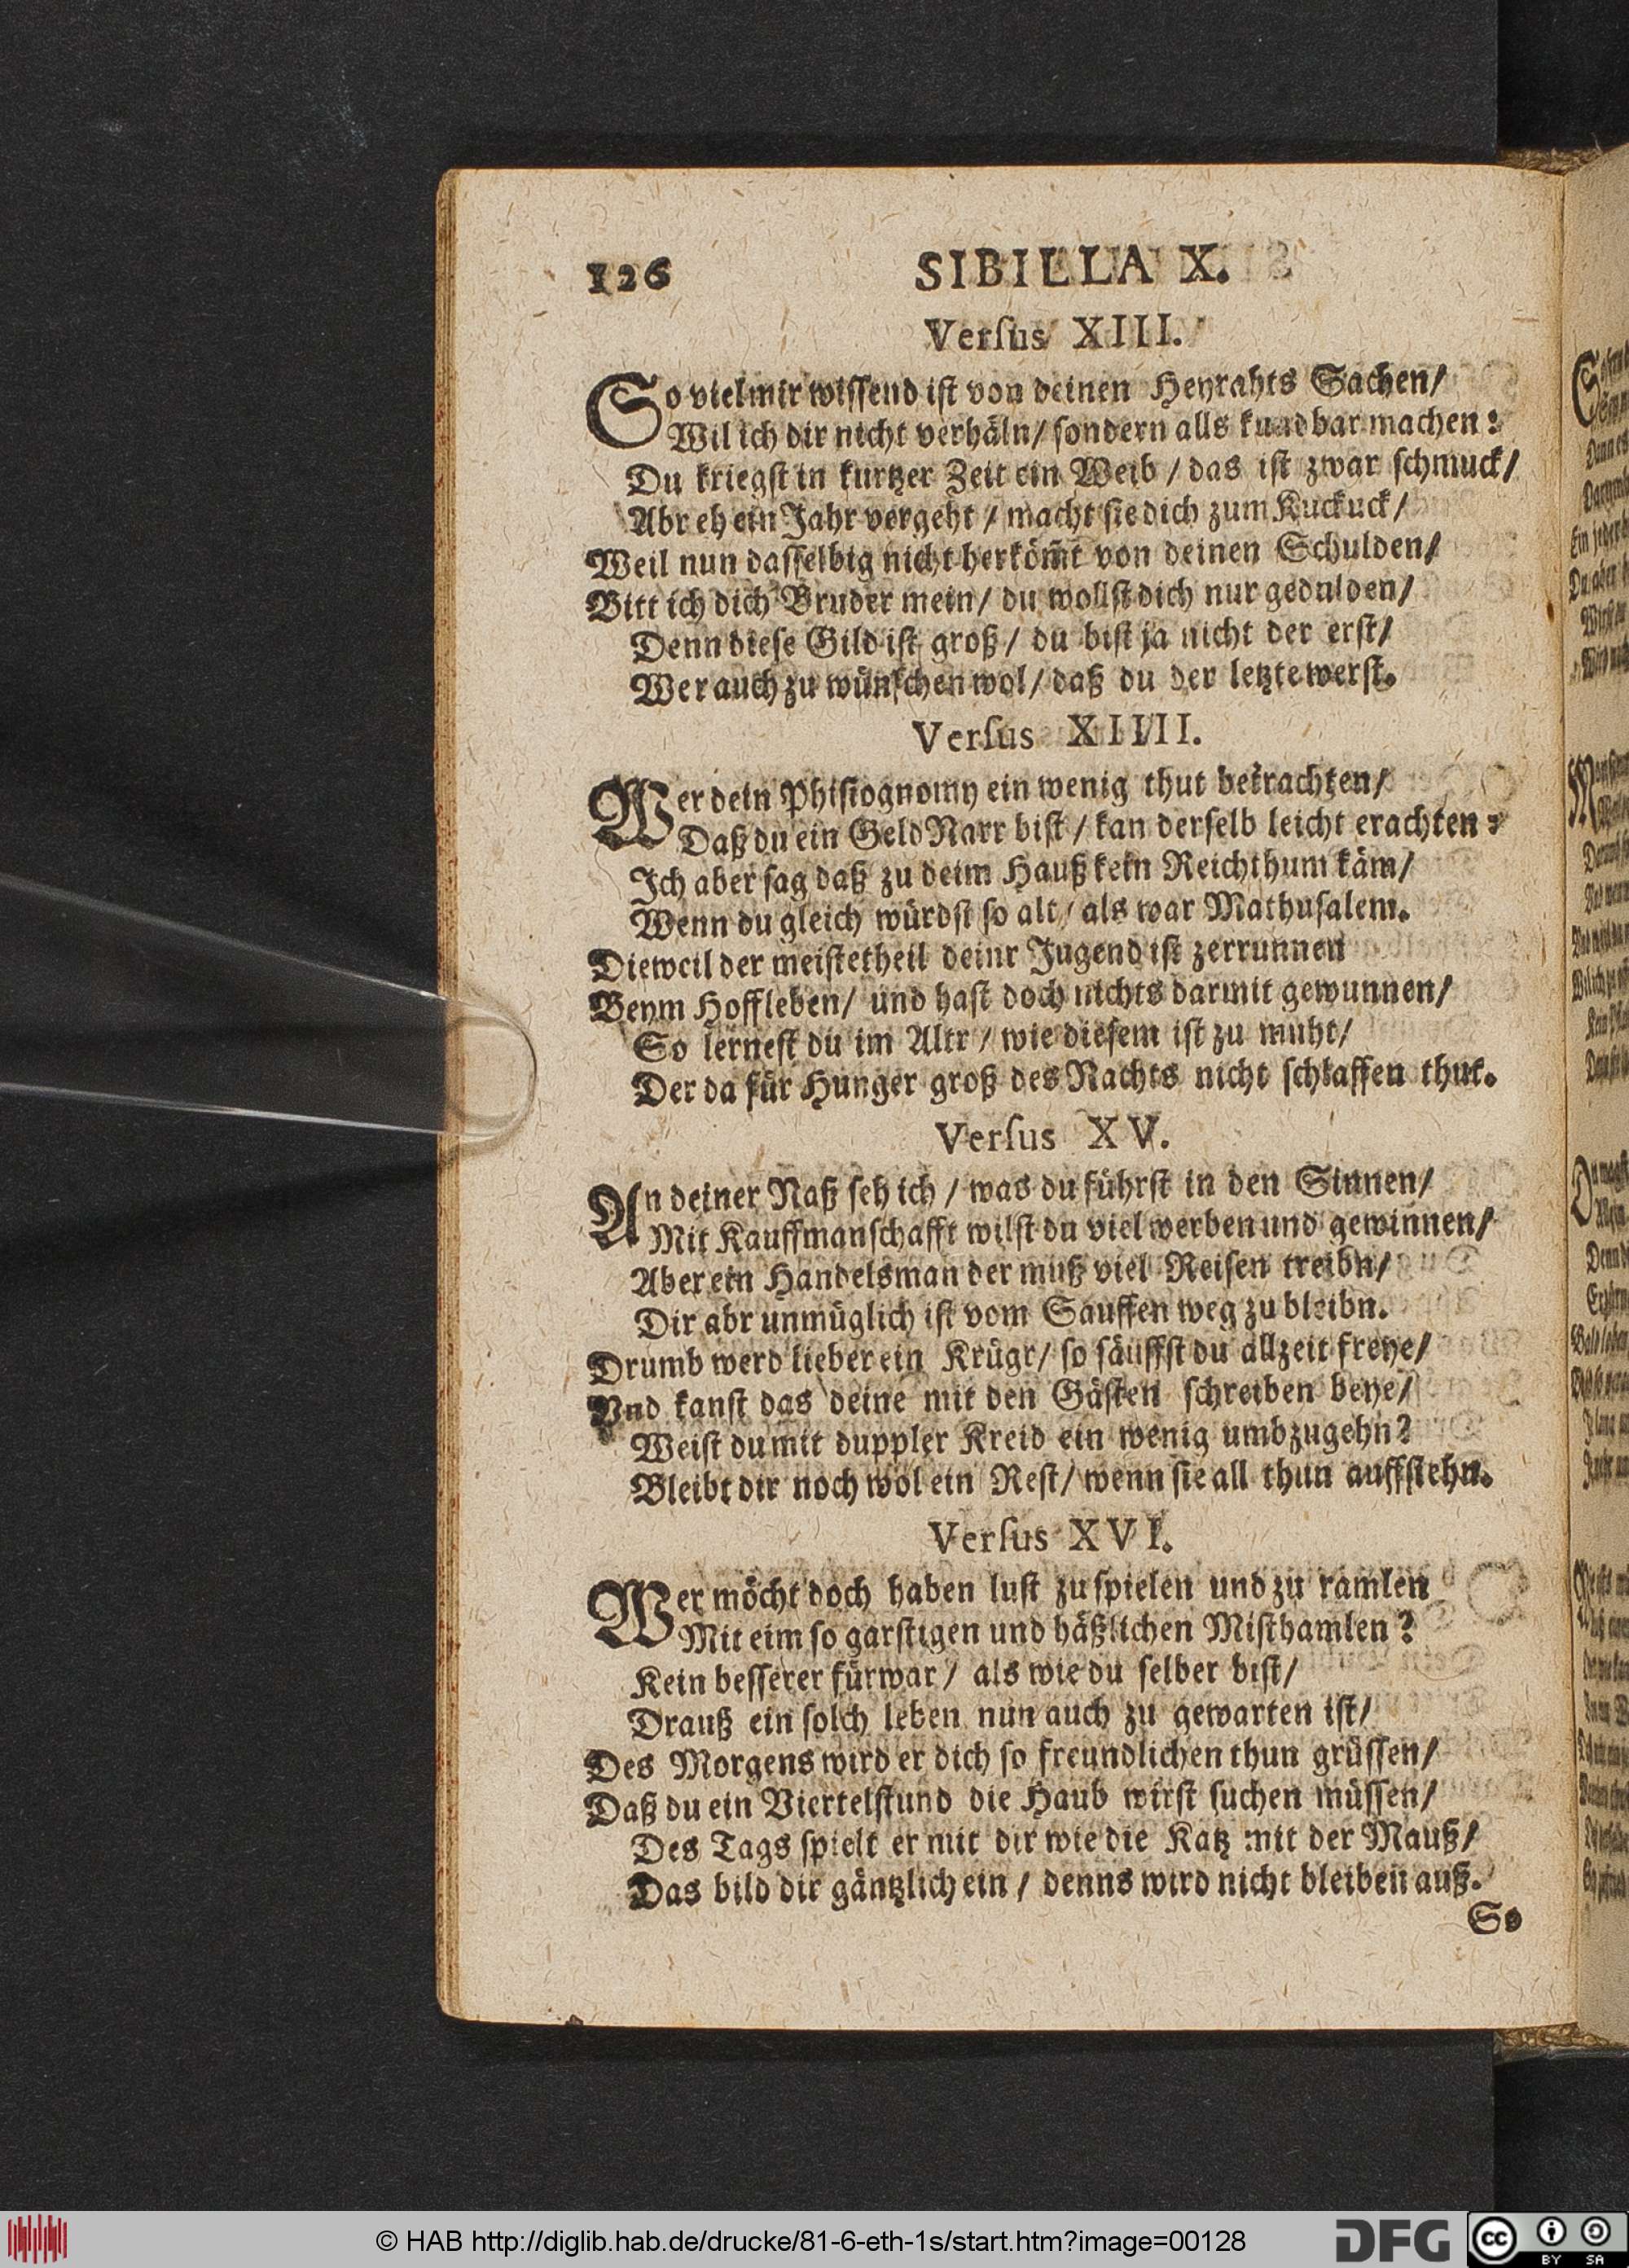 126 SIBILLA X.
Verſus XIII.
So viel mir wiſſend iſt von deinen Heyrahts Sachen/
Wil ich dir nicht verhäln/ ſondern alls kundbar machen:
Du kriegſt in kurtzer Zeit ein Weib / das iſt zwar ſchmuck/
Abr eh ein Jahr vergeht / macht ſie dich zum Kuckuck/
Weil nun daſſelbig nicht herköm̃t von deinen Schulden/
Bitt ich dich Bruder mein/ du wollſt dich nur gedulden/
Denn dieſe Gild iſt groß/ du biſt ja nicht der erſt/
Wer auch zu wünſchen wol/ daß du der letzte werſt.
Verſus XIIII.
Wer dein Phiſiognomy ein wenig thut betrachten/
Daß du ein Geld Narr biſt / kan derſelb leicht erachten:
Ich aber ſag daß zu deim Hauß kein Reichthum käm/
Wenn du gleich würdſt ſo alt/ als war Mathuſalem.
Dieweil der meiſtetheil deinr Jugend iſt zerrunnen
Beym Hoffleben/ und haſt doch nichts darmit gewunnen/
So lerneſt du im Altr / wie dieſem iſt zu muht/
Der da für Hunger groß des Nachts nicht ſchlaffen thut.
Verſus XV.
An deiner Naß ſeh ich / was du führſt in den Sinnen/
Mit Kauffmanſchafft wilſt du viel werben und gewinnen/
Aber ein Handelsman der muß viel Reiſen treibn/
Dir abr unmüglich iſt vom Sauffen weg zu bleibn.
Drumb werd lieber ein Krügr/ ſo ſäuffſt du allzeit freye/
Vnd kanſt das deine mit den Gäſten ſchreiben beye/
Weiſt du mit duppler Kreid ein wenig umbzugehn?
Bleibt dir noch wol ein Reſt/ wenn ſie all thun auffſtehn.
Verſus XVI.
Wer möcht doch haben luſt zu ſpielen und zu ramlen
Mit eim ſo garſtigen und häßlichen Miſthamlen?
Kein beſſerer fürwar/ als wie du ſelber biſt/
Drauß ein ſolch leben nun auch zu gewarten iſt/
Des Morgens wird er dich ſo freundlichen thun grüſſen/
Daß du ein Viertelſtund die Haub wirſt ſuchen müſſen/
Des Tags ſpielt er mit dir wie die Katz mit der Mauß/
Das bild dir gäntzlich ein / denns wird nicht bleiben auß.
So
© HAB http://diglib.hab.de/drucke/81-6-eth-1s/start.htm?image=00128
DFG
cc BY SA